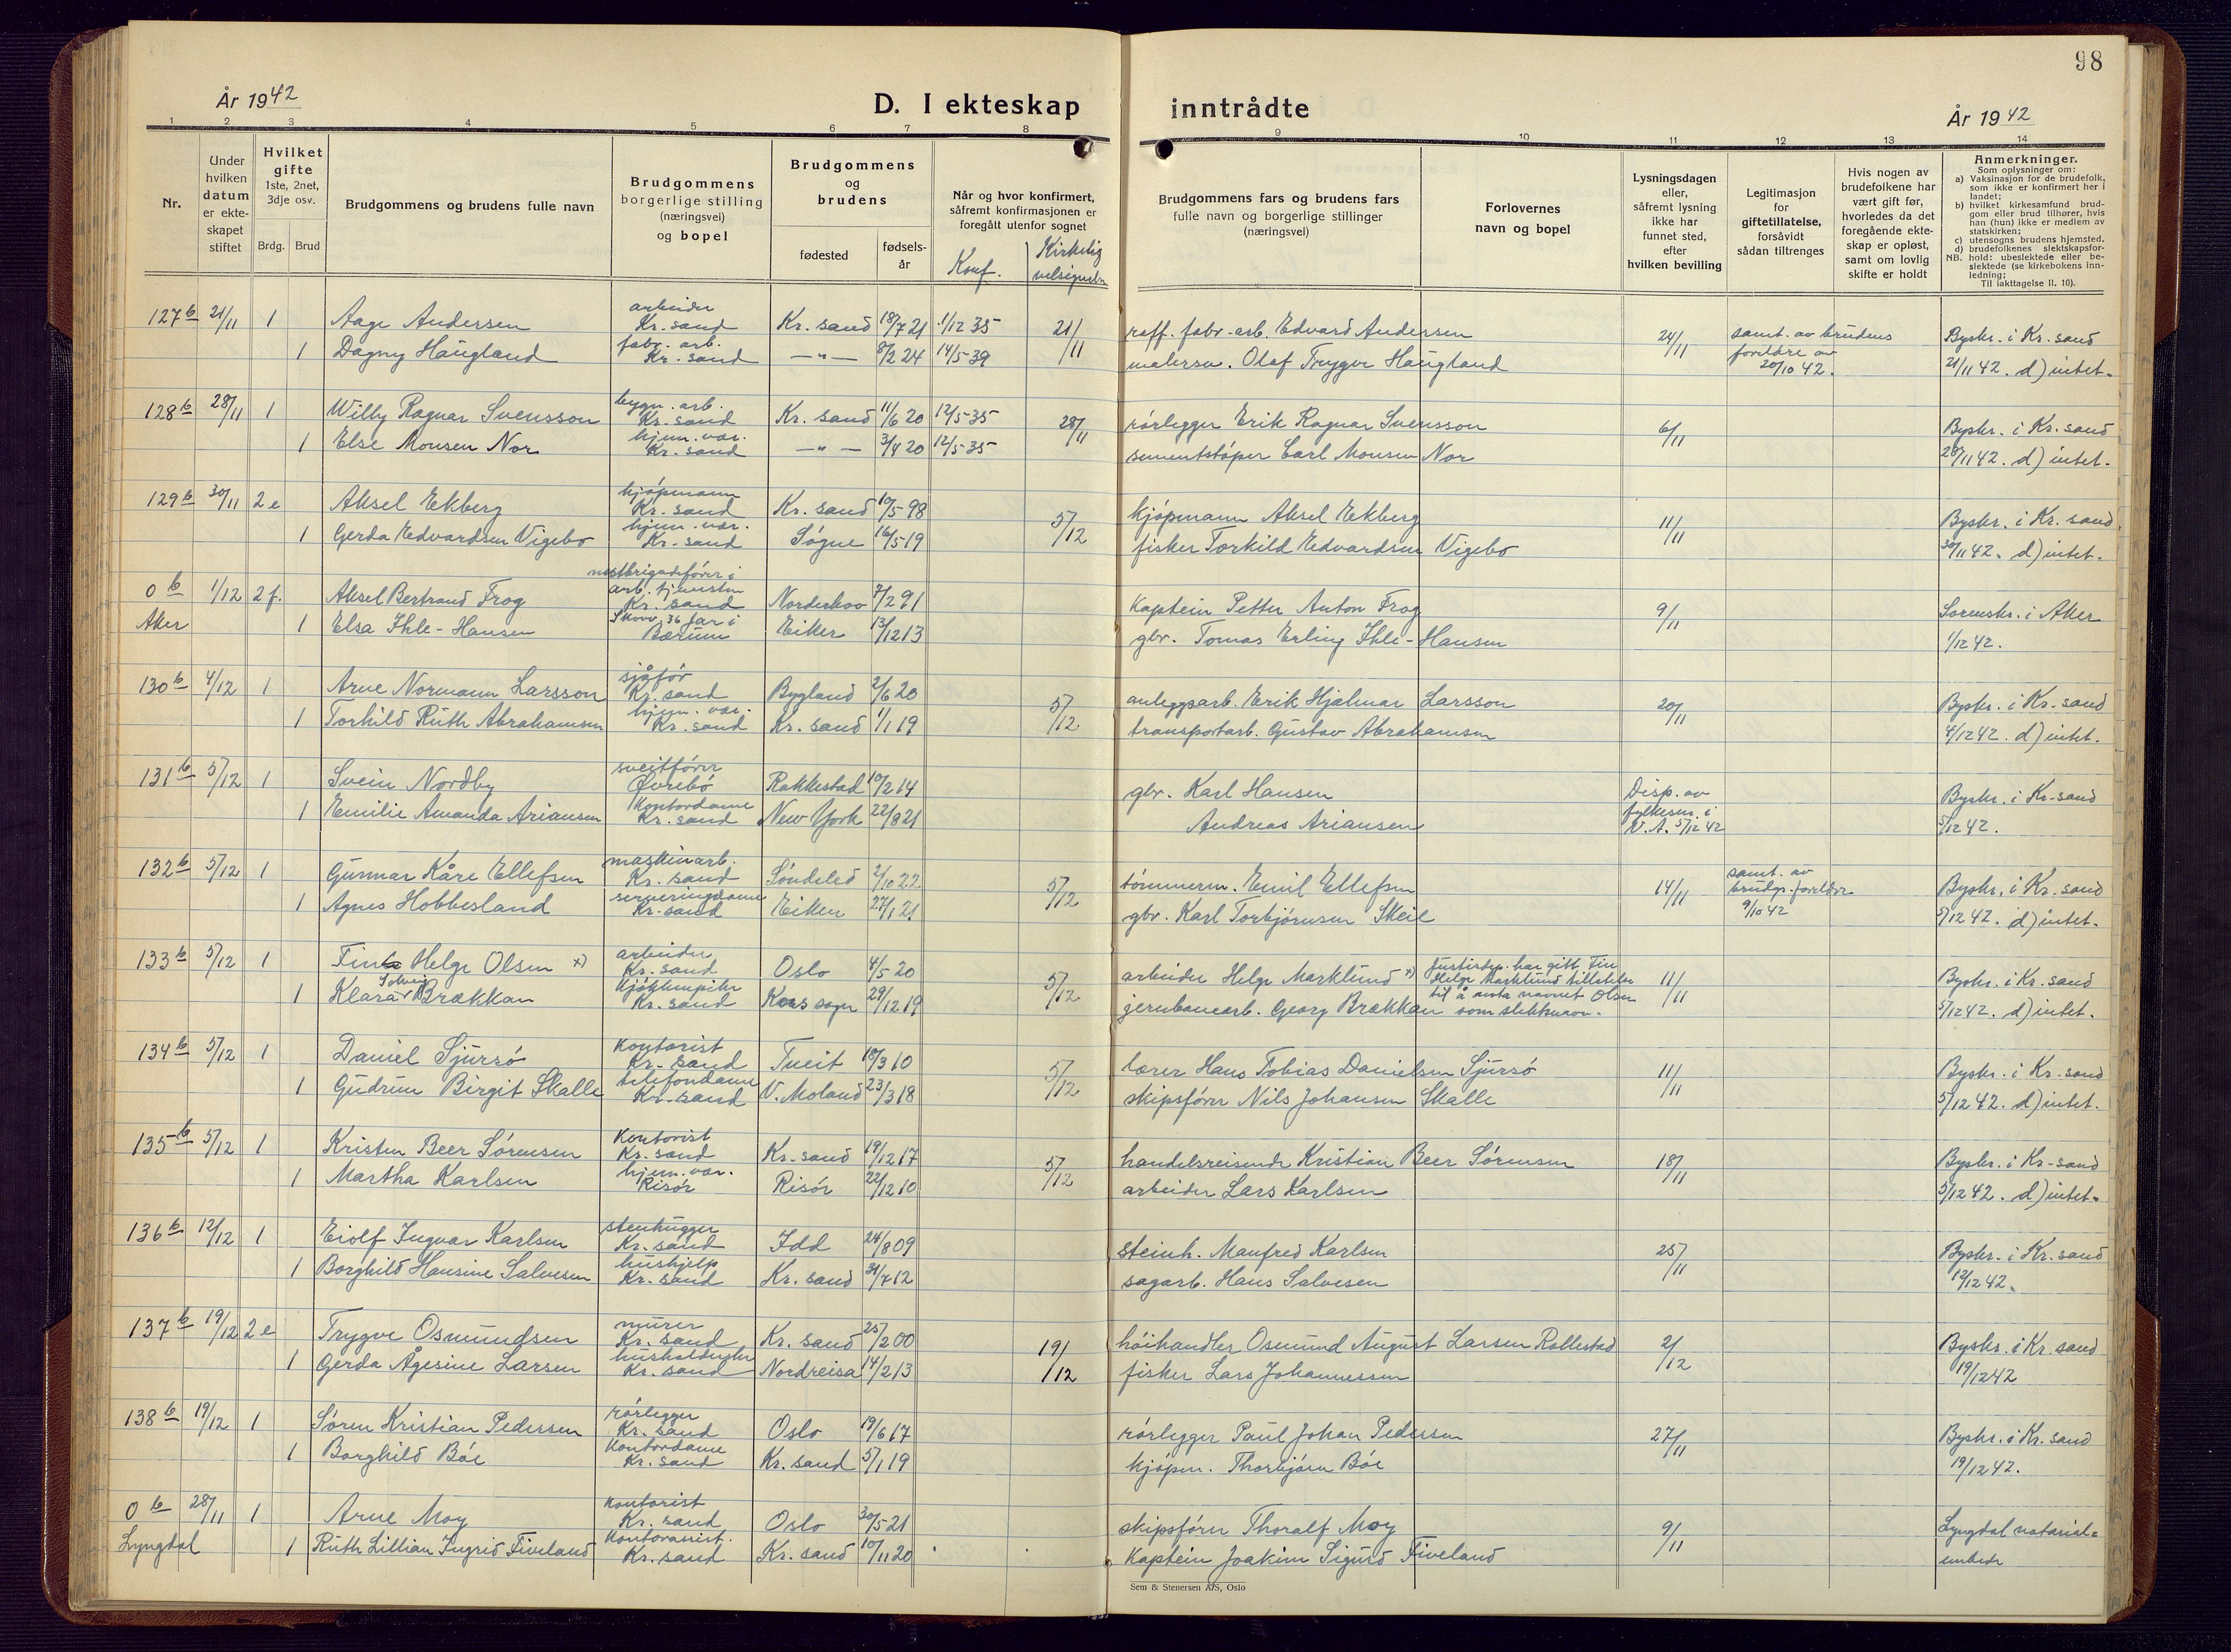 98
År 1942
D. I ekteskap inntrådte
År 1942
1 2 3 4 5 6 7 8 9 10 11 12 13 14
Nr.
Under hvilken datum er ekteskapet stiftet
Hvilket gifte 1ste, 2net, 3dje osv.
Brdg. Brud
Brudgommens og brudens fulle navn
Brudgommens borgerlige stilling (næringsvei) og bopel
Brudgommens og brudens
fødested
fødselsår
Når og hvor konfirmert, såfremt konfirmasjonen er foregått utenfor sognet
Konf.
Kirkelig velsignelse
Brudgommens fars og brudens fars fulle navn og borgerlige stillinger (næringsvei)
Forlovernes navn og bopel
Lysningsdagen eller, såfremt lysning ikke har funnet sted, efter hvilken bevilling
Legitimasjon for giftetillatelse, forsåvidt sådan tiltrenges
Hvis nogen av brudefolkene har vært gift før, hvorledes da det foregående ekteskap er opløst, samt om lovlig skifte er holdt
Anmerkninger.
Som oplysninger om:
a) Vaksinasjon for de brudefolk, som ikke er konfirmert her i landet;
b) hvilket kirkesamfund brudgom eller brud tilhører, hvis han (hun) ikke er medlem av statskirken;
c) utensogns brudens hjemsted.
d) brudefolkenes slektskapsforhold: ubeslektede eller beslektede (se kirkebokens innledning;
NB.
Til iakttagelse II. 10).
127 b 21/11 1 Aage Andersen arbeider Kr. sand Kr. sand 18/7 21 1/12 35 21/11 raff. fabr. arb. Edvard Andersen 24/11 samt. av brudens foreldre av 20/10 42. Byskr. i Kr. sand
1 Dagny Haugland fabr. arb. Kr. sand —"— 8/2 24 14/5 39 malersv. Olaf Trygve Haugland 21/11 42. d) intet.
128 b 28/11 1 Willy Ragnar Svensson bygn. arb. Kr. sand Kr. sand 11/6 20 12/5 35 28/11 rørlegger Erik Ragnar Svensson 6/11 Byskr. i Kr. sand
1 Else Monsen Nor hjem. vær. Kr. sand —"— 3/4 20 12/5 35 sementstøper Carl Monsen Nor 28/11 42. d) intet.
129 b 30/11 2 e Aksel Ekberg kjøpmann Kr. sand Kr. sand 10/5 98 5/12 kjøpmann Aksel Ekberg 11/11 Byskr. i Kr. sand
1 Gerda Edvardsen Vigebo hjem. vær. Kr. sand Søgne 16/5 19 fisker Torkild Edvardsen Vigebo 30/11 42. d) intet.
0 b 1/12 2 f. Aksel Bertrand Frog nestbrigadefører i arb. tjenesten Kr. sand Norderhov 7/2 91 Kaptein Petter Anton Frog 9/11 Sorenskr. i Aker
Aker 1 Elsa Ihle-Hansen Bærum Eiker 13/12 13 gbr. Tomas Erling Ihle-Hansen 1/12 42.
130 b 4/12 1 Arne Normann Larsson sjåfør Kr. sand Bygland 2/6 20 5/12 anleggsarb. Erik Hjalmar Larsson 20/11 Byskr. i Kr. sand
1 Torhild Ruth Abrahamsen hjem. vær. Kr. sand Kr. sand 1/1 19 transportarb. Gustav Abrahamsen 4/12 42. d) intet.
131 b 5/12 1 Svein Nordby sveitfører Øvrebø Rakkestad 10/2 14 gbr. Karl Hansen Disp. av fylkesm. i V. A. 5/12 42 Byskr. i Kr. sand
1 Emilie Amanda Ariansen Kontordame Kr. sand New York 22/8 21 Andreas Ariansen 5/12 42.
132 b 5/12 1 Gunnar Kåre Ellefsen maskinarb. Kr. sand Søndeled 2/10 22 5/12 tømmerm. Emil Ellefsen 14/11 samt. av brudg. foreldre 9/10 42 Byskr. i Kr. sand
1 Agnes Hobbesland serveringsdame Kr. sand Eiken 27/1 21 gbr. Karl Torbjørnsen Skeie 5/12 42. d) intet.
133 b 5/12 1 Finn Helge Olsen x) arbeider Kr. sand Oslo 4/5 20 5/12 arbeider Helge Marklund x) Justisdep. har gitt Fin Helge Marklund tillatelse til å anta navnet Olsen som slektsnavn. 11/11 Byskr. i Kr. sand
1 Klara Solveig Brækkan kjøkkenpike Kr. sand Kors sogn 29/12 19 jernbanearb. Georg Brækkan 5/12 42. d) intet.
134 b 5/12 1 Daniel Sjursø Kontorist Kr. sand Tveit 18/3 10 5/12 lærer Hans Tobias Danielsen Sjursø 11/11 Byskr. i Kr. sand
1 Gudrun Birgit Skalle telefondame Kr. sand V. Moland 23/3 18 skipsfører Nils Johansen Skalle 5/12 42. d) intet.
135 b 5/12 1 Kristen Beer Sørensen Kontorist Kr. sand Kr. sand 19/12 17 5/12 handelsreisende Kristian Beer Sørensen 18/11 Byskr. i Kr. sand
1 Martha Karlsen hjem. vær. Risør Risør 22/12 10 arbeider Lars Karlsen 5/12 42. d) intet.
136 b 12/12 1 Eiolf Ingvar Karlsen stenhugger Kr. sand Idd 24/8 09 steinh. Manfred Karlsen 25/11 Byskr. i Kr. sand
1 Borghild Hansine Salvesen hushjelp Kr. sand Kr. sand 31/7 12 sagarb. Hans Salvesen 12/12 42.
137 b 19/12 2 e Trygve Osmundsen murer Kr. sand Kr. sand 25/2 00 19/12 høihandler Osmund August Larsen Rollestad 2/12 Byskr. i Kr. sand
1 Gerda Ågesine Larsen Kr. sand Nordreisa 14/2 13 fisker Lars Johannessen 19/12 42
138 b 19/12 1 Søren Kristian Pedersen rørlegger Kr. sand Oslo 19/6 17 rørlegger Paul Johan Pedersen 27/11 Byskr. i Kr. sand
1 Borghild Bøe Kontordame Kr. sand Kr. sand 5/1 19 kjøpm. Thorbjørn Bøe 19/12 42.
0 b 28/11 1 Arne Moy Kontorist Kr. sand Oslo 30/5 21 skipsfører Thoralf Moy 9/11 Lyngdal notarial=
Lyngdal 1 Ruth Lillian Ingrid Fiveland Kontorassist. Kr. sand Kr. sand 10/11 20 Kaptein Joakim Sigurd Fiveland embede
Sem & Stenersen A/S, Oslo